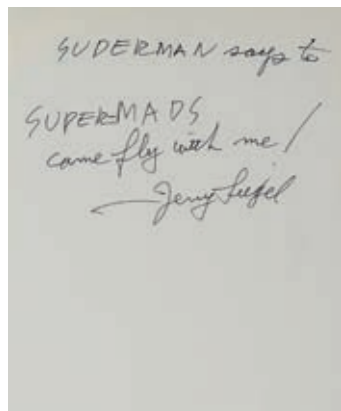 SUPERMAN says to
SUPERMADS
come fly with me!
—Jerry Siegel